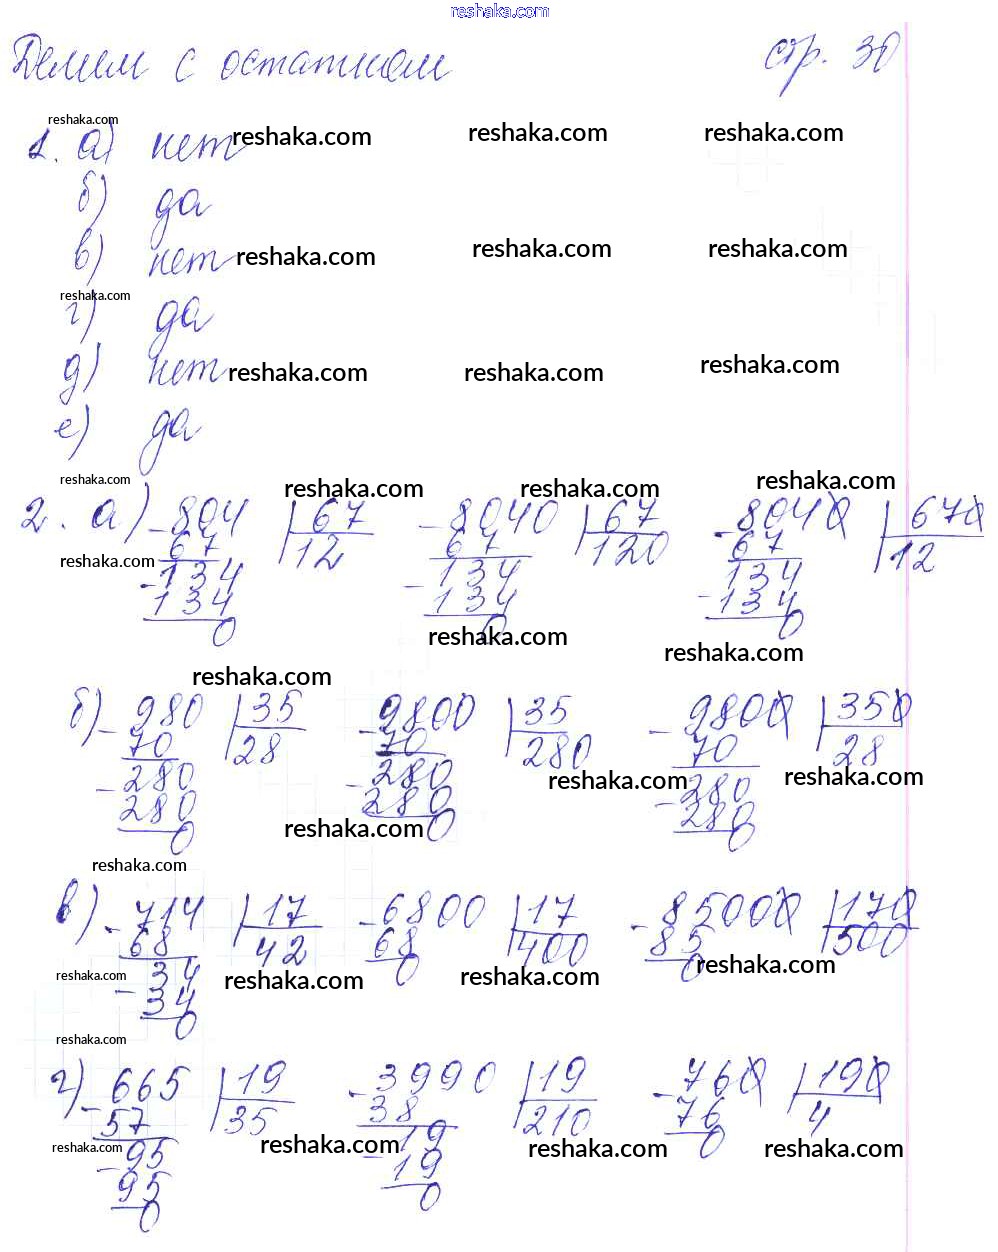 reshaka.com
Делим с остатком стр. 30
reshaka.com
1. а) нет reshaka.com reshaka.com reshaka.com
б) да
в) нет reshaka.com reshaka.com reshaka.com
reshaka.com
г) да
д) нет reshaka.com reshaka.com reshaka.com
е) да
reshaka.com reshaka.com reshaka.com reshaka.com
2. а) -804 67 -8040 67 -8040 670
67 12 67 120 67 12
reshaka.com
-134 -134 134
134 134 -134
0 0 0
reshaka.com reshaka.com
reshaka.com
б) -980 35 -9800 35 -9800 350
70 28 70 280 70 28
reshaka.com reshaka.com
-280 -280 -280
280 280 280
0 0 0
reshaka.com
reshaka.com
в) -714 17 -6800 17 -85000 170
68 42 68 400 85 500
0 0
reshaka.com reshaka.com reshaka.com reshaka.com
-34
34
0
reshaka.com
г) -665 19 -3990 19 -760 190
57 35 38 210 76 4
0
reshaka.com reshaka.com reshaka.com reshaka.com
-95 -19
95 19
0 0